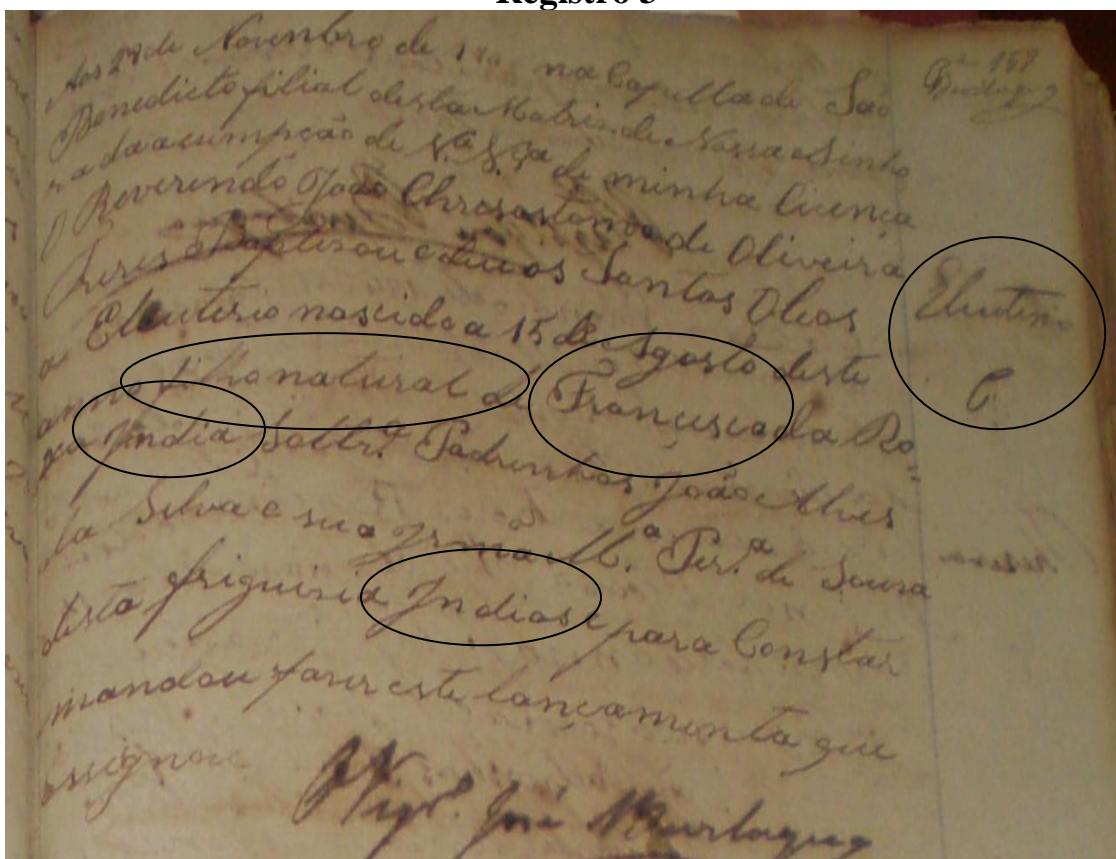 Registro 3
Aos 27 de Novembro de na Capella de São
Benedicto filial desta Matris de Nossa Senho
ra da acumpção de de minha licença
O Reverendo João Chrisostomo de Oliveira
Baptisou e deu os Santos Oleos
a Eleuterio nascido a 15 de Agosto deste
anno filho natural de Francisca da Ro
India Soltrª Padrinhos João Alves
da Silva e sua Irmã Mª Perª de Sousa
desta friguisia Indios e para Constar
mandou faser este lançamento que
assignou
Vigrº José
159
Eleuterio